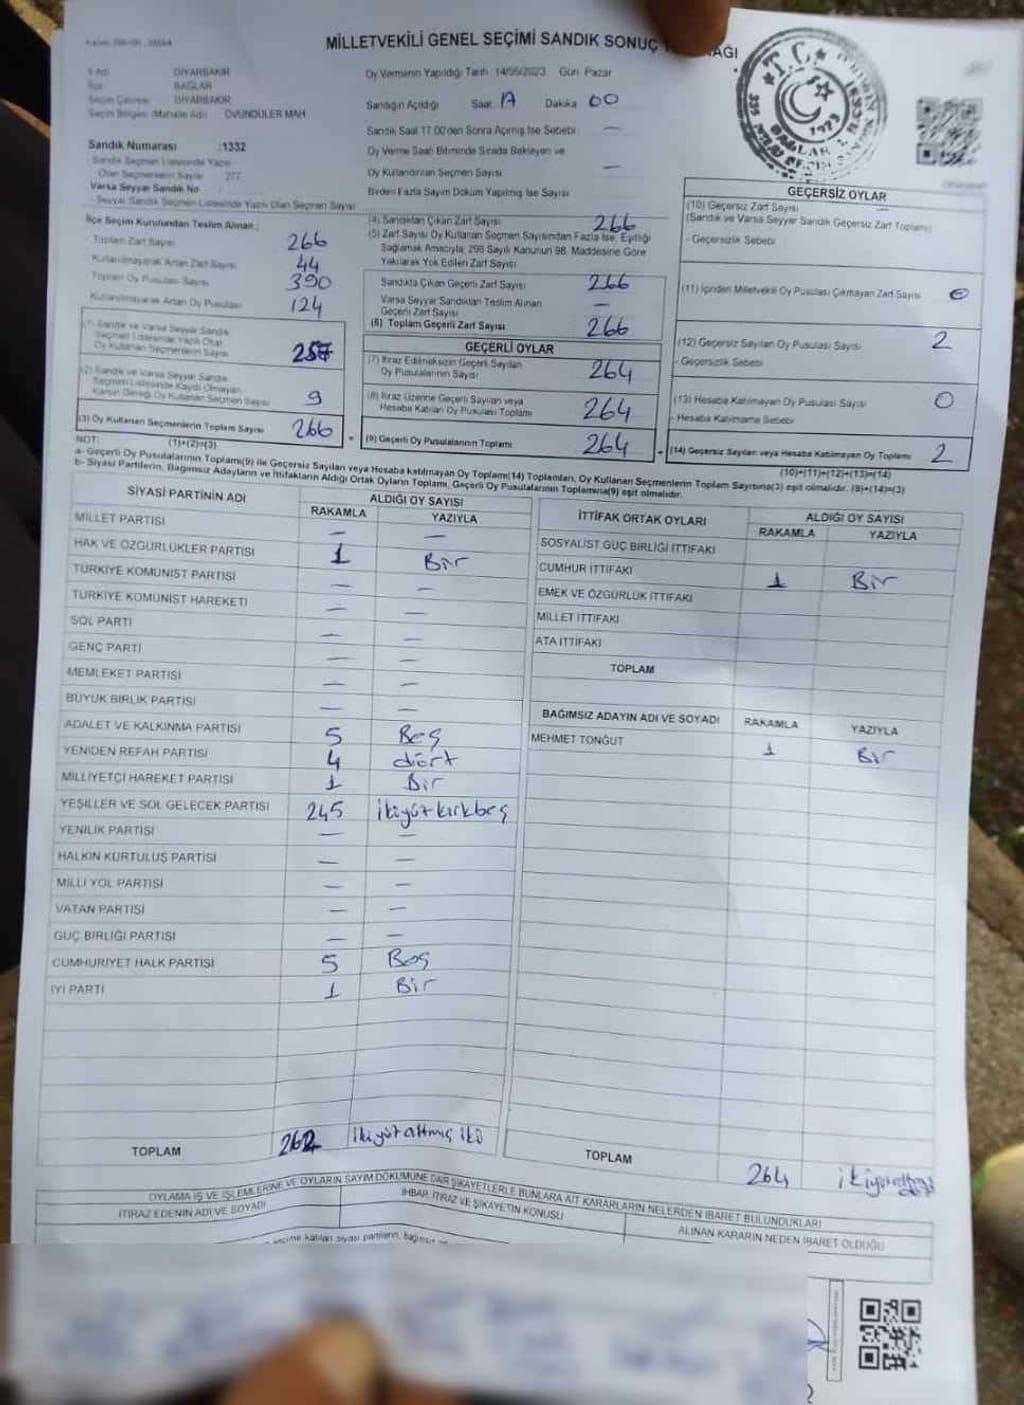 MİLLETVEKİLİ GENEL SEÇİMİ SANDIK SONUÇ
İl Adı DİYARBAKIR
İlçe BAĞLAR
Seçim Çevresi DİYARBAKIR
Seçim Bölgesi (Mahalle Adı) ÖVÜNDÜLER MAH
Sandık Numarası :1332
Sandık Seçmen Listesinde Yazılı
Olan Seçmenlerin Sayısı 277
Varsa Seyyar Sandık No
Seyyar Sandık Seçmen Listesinde Yazılı Olan Seçmen Sayısı
Oy Vermenin Yapıldığı Tarih : 14/05/2023 Gün: Pazar
Sandığın Açıldığı Saat: 17 Dakika 00
Sandık Saat 17.00'den Sonra Açılmış İse Sebebi —
Oy Verme Saati Bitiminde Sırada Bekleyen ve
Oy Kullandırılan Seçmen Sayısı —
Birden Fazla Sayım Döküm Yapılmış İse Sayısı
T.C.
1923
İlçe Seçim Kurulundan Teslim Alınan ;
Toplam Zarf Sayısı 266
Kullanılmayarak Artan Zarf Sayısı 44
Toplam Oy Pusulası Sayısı 390
Kullanılmayarak Artan Oy Pusulası 124
(1) Sandık ve Varsa Seyyar Sandık
Seçmen Listesinde Yazılı Olup
Oy Kullanan Seçmenlerin Sayısı 257
(2) Sandık ve Varsa Seyyar Sandık
Seçmen Listesinde Kaydı Olmayan
Kanun Gereği Oy Kullanan Seçmen Sayısı 9
(3) Oy Kullanan Seçmenlerin Toplam Sayısı 266
(1)+(2)=(3)
(4) Sandıktan Çıkan Zarf Sayısı 266
(5) Zarf Sayısı Oy Kullanan Seçmen Sayısından Fazla İse, Eşitliği
Sağlamak Amacıyla, 298 Sayılı Kanunun 98. Maddesine Göre
Yakılarak Yok Edilen Zarf Sayısı
Sandıkta Çıkan Geçerli Zarf Sayısı 266
Varsa Seyyar Sandıktan Teslim Alınan
Geçerli Zarf Sayısı —
(6) Toplam Geçerli Zarf Sayısı 266
GEÇERLİ OYLAR
(7) İtiraz Edilmeksizin Geçerli Sayılan
Oy Pusulalarının Sayısı 264
(8) İtiraz Üzerine Geçerli Sayılan veya
Hesaba Katılan Oy Pusulası Toplamı 264
(9) Geçerli Oy Pusulalarının Toplamı 264
GEÇERSİZ OYLAR
(10) Geçersiz Zarf Sayısı
(Sandık ve Varsa Seyyar Sandık Geçersiz Zarf Toplamı)
- Geçersizlik Sebebi
(11) İçinden Milletvekili Oy Pusulası Çıkmayan Zarf Sayısı 0
(12) Geçersiz Sayılan Oy Pusulası Sayısı 2
- Geçersizlik Sebebi
(13) Hesaba Katılmayan Oy Pusulası Sayısı 0
- Hesaba Katılmama Sebebi
(14) Geçersiz Sayılan veya Hesaba Katılmayan Oy Toplamı 2
(10)+(11)+(12)+(13)=(14)
NOT:
a- Geçerli Oy Pusulalarının Toplamı(9) ile Geçersiz Sayılan veya Hesaba katılmayan Oy Toplamı(14) Toplamları, Oy Kullanan Seçmenlerin Toplam Sayısına(3) eşit olmalıdır. (9)+(14)=(3)
b- Siyasi Partilerin, Bağımsız Adayların ve İttifakların Aldığı Ortak Oyların Toplamı, Geçerli Oy Pusulalarının Toplamına(9) eşit olmalıdır.
SİYASİ PARTİNİN ADI ALDIĞI OY SAYISI
RAKAMLA YAZIYLA
MİLLET PARTİSİ — —
HAK VE ÖZGÜRLÜKLER PARTİSİ 1 Bir
TÜRKİYE KOMÜNİST PARTİSİ — —
TÜRKİYE KOMÜNİST HAREKETİ — —
SOL PARTİ — —
GENÇ PARTİ — —
MEMLEKET PARTİSİ — —
BÜYÜK BİRLİK PARTİSİ — —
ADALET VE KALKINMA PARTİSİ 5 Beş
YENİDEN REFAH PARTİSİ 4 dört
MİLLİYETÇİ HAREKET PARTİSİ 1 Bir
YEŞİLLER VE SOL GELECEK PARTİSİ 245 ikiyüzkırkbeş
YENİLİK PARTİSİ — —
HALKIN KURTULUŞ PARTİSİ — —
MİLLİ YOL PARTİSİ — —
VATAN PARTİSİ — —
GÜÇ BİRLİĞİ PARTİSİ — —
CUMHURİYET HALK PARTİSİ 5 Beş
İYİ PARTİ 1 Bir
TOPLAM 262 ikiyüzaltmış iki
İTTİFAK ORTAK OYLARI ALDIĞI OY SAYISI
RAKAMLA YAZIYLA
SOSYALİST GÜÇ BİRLİĞİ İTTİFAKI
CUMHUR İTTİFAKI 1 Bir
EMEK VE ÖZGÜRLÜK İTTİFAKI
MİLLET İTTİFAKI
ATA İTTİFAKI
TOPLAM
BAĞIMSIZ ADAYIN ADI VE SOYADI RAKAMLA YAZIYLA
MEHMET TONĞUT 1 Bir
TOPLAM 264
OYLAMA İŞ VE İŞLEMLERİNE VE OYLARIN SAYIM DÖKÜMÜNE DAİR ŞİKAYETLERLE BUNLARA AİT KARARLARIN NELERDEN İBARET BULUNDUKLARI
İTİRAZ EDENİN ADI VE SOYADI İHBAR, İTİRAZ VE ŞİKAYETİN KONUSU ALINAN KARARIN NEDEN İBARET OLDUĞU
seçime katılan siyasi partilerin,